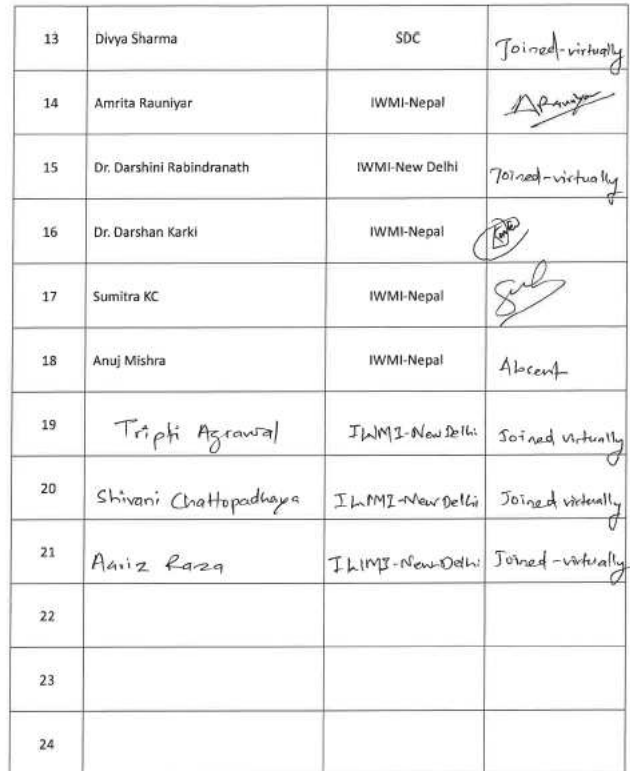 13 Divya Sharma SDC Joined-virtually
14 Amrita Rauniyar IWMI-Nepal ARauniyar
15 Dr. Darshini Rabindranath IWMI-New Delhi Joined-virtually
16 Dr. Darshan Karki IWMI-Nepal
17 Sumitra KC IWMI-Nepal
18 Anuj Mishra IWMI-Nepal Abscent
19 Tripti Agrawal IWMI-New Delhi Joined virtually
20 Shivani Chattopadhaya IWMI-New Delhi Joined virtually
21 Aariz Raza IWMI-New Delhi Joined-virtually
22
23
24